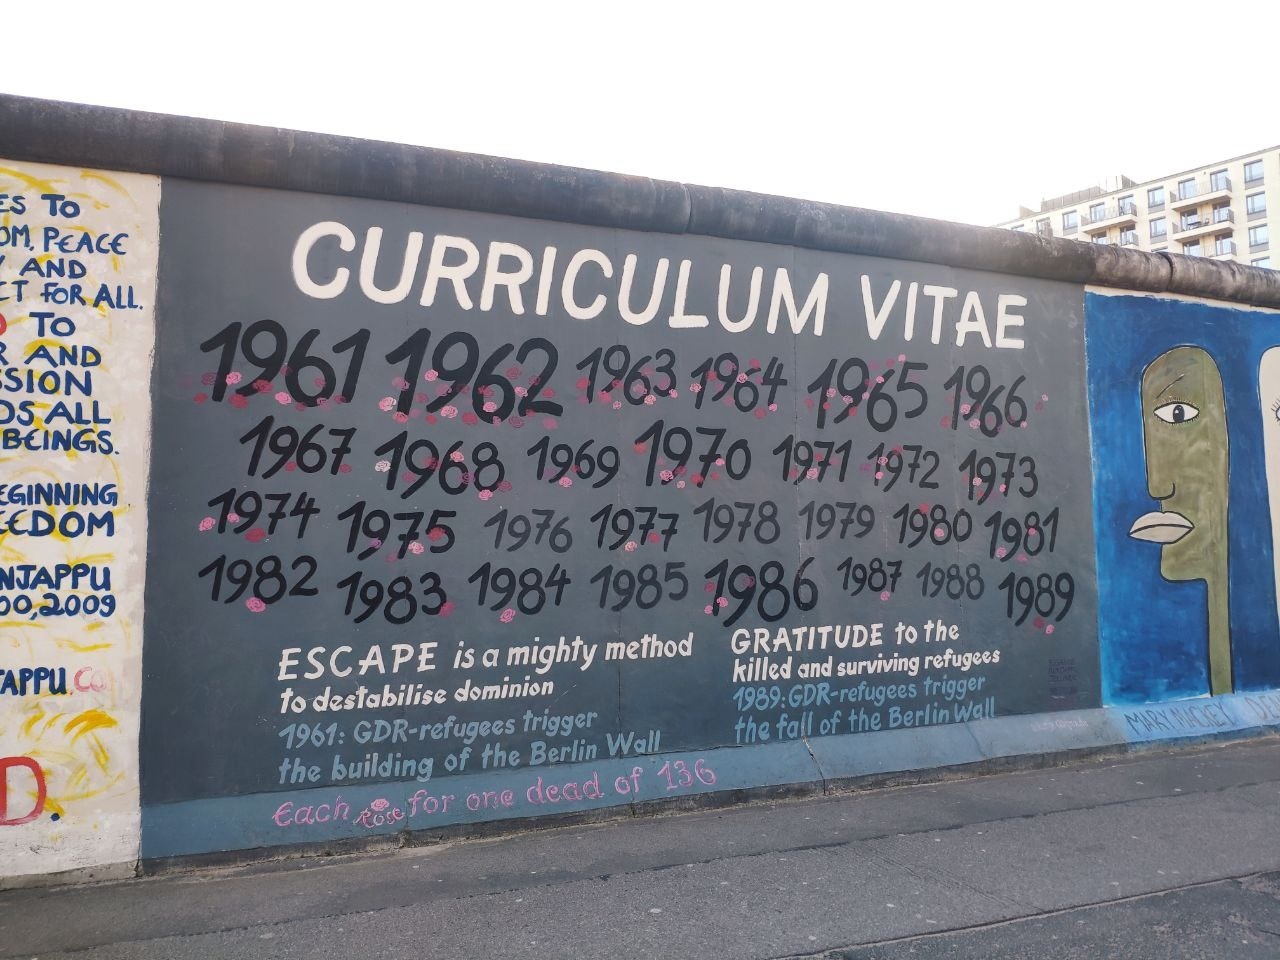 ES TO
OM, PEACE
Y AND
CT FOR ALL.
TO
R AND
SSION
DS ALL
BEINGS.
EGINNING
EEDOM
NJAPPU
00,2009
TAPPU.CO
D.
CURRICULUM VITAE
1961 1962 1963 1964 1965 1966
1967 1968 1969 1970 1971 1972 1973
1974 1975 1976 1977 1978 1979 1980 1981
1982 1983 1984 1985 1986 1987 1988 1989
ESCAPE is a mighty method
to destabilise dominion
1961: GDR-refugees trigger
the building of the Berlin Wall
GRATITUDE to the
killed and surviving refugees
1989: GDR-refugees trigger
the fall of the Berlin Wall
Each Rose for one dead of 136
MARY MACKEY